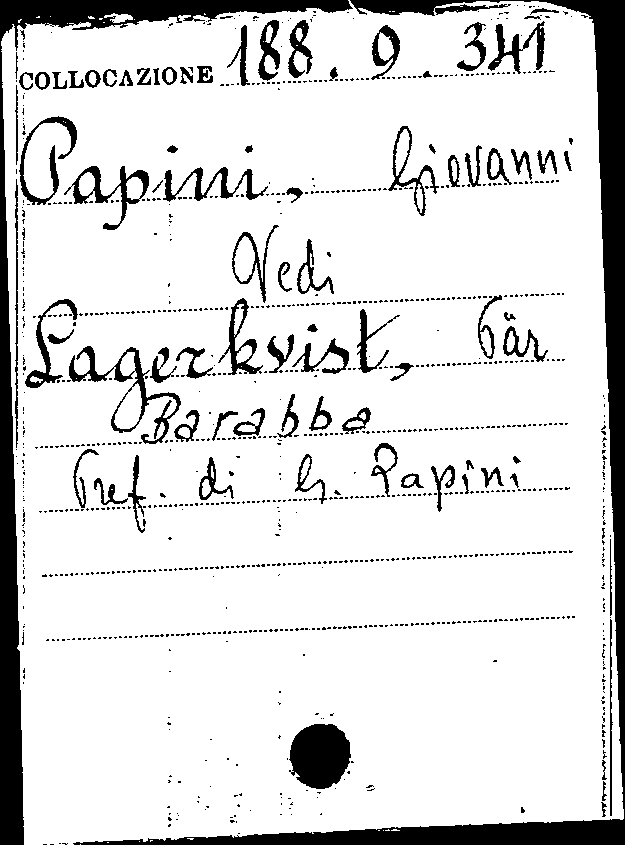 COLLOCAZIONE 188. 9. 341
Papini, Giovanni
Vedi
Lagerkvist, Pär
Barabba
Pref. di G. Papini